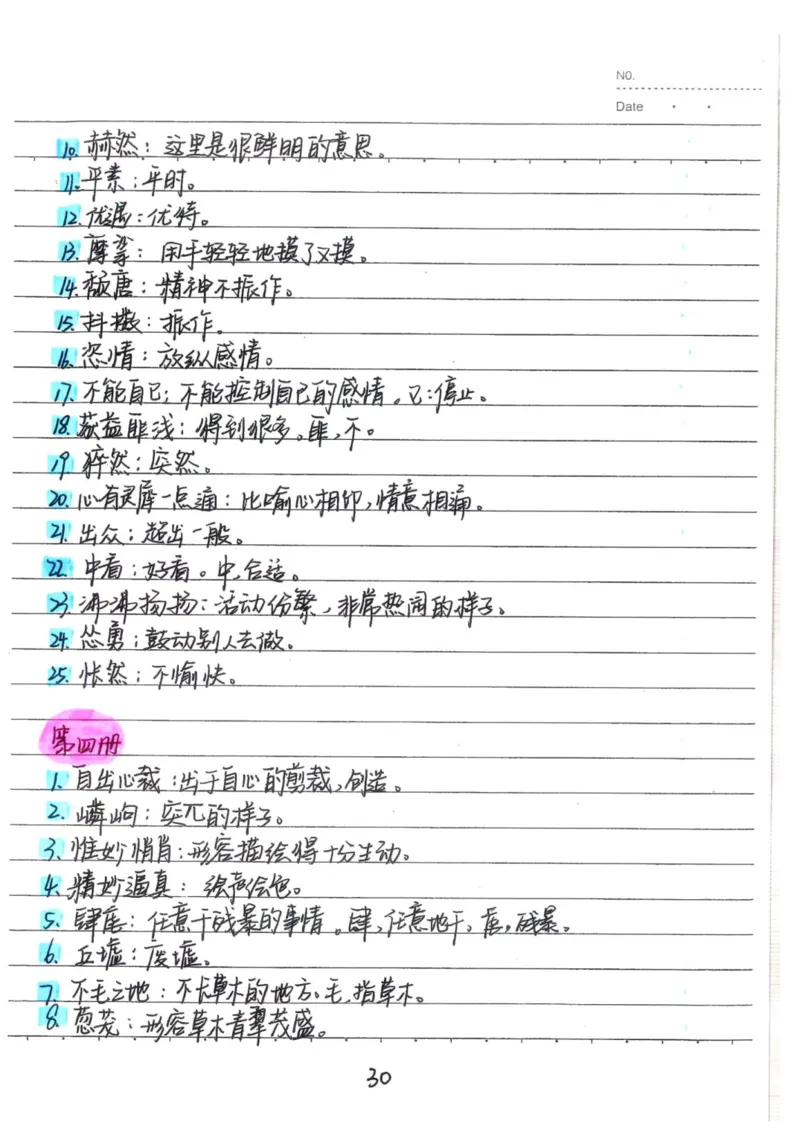 NO.
Date
10. 赫然：这里是很鲜明的意思。
11. 平素：平时。
12. 优渥：优待。
13. 摩挲：用手轻轻地摸了又摸。
14. 颓唐：精神不振作。
15. 抖擞：振作。
16. 恣情：放纵感情。
17. 不能自已：不能控制自己的感情。已：停止。
18. 获益匪浅：得到很多。匪，不。
19. 猝然：突然。
20. 心有灵犀一点通：比喻心心相印，情意相通。
21. 出众：超出一般。
22. 中看：好看。中，合适。
23. 沸沸扬扬：活动份繁，非常热闹的样子。
24. 怂勇：鼓动别人去做。
25. 怅然：不愉快。
第四册
1. 自出心裁：出于自心的剪裁，创造。
2. 嶙峋：突兀的样子。
3. 惟妙惟肖：形容描绘得十分生动。
4. 精妙逼真：绘声绘色。
5. 肆虐：任意干残暴的事情。肆，任意地干，虐，残暴。
6. 丘墟：废墟。
7. 不毛之地：不长草木的地方。毛，指草木。
8. 葱茏：形容草木青翠茂盛。
30